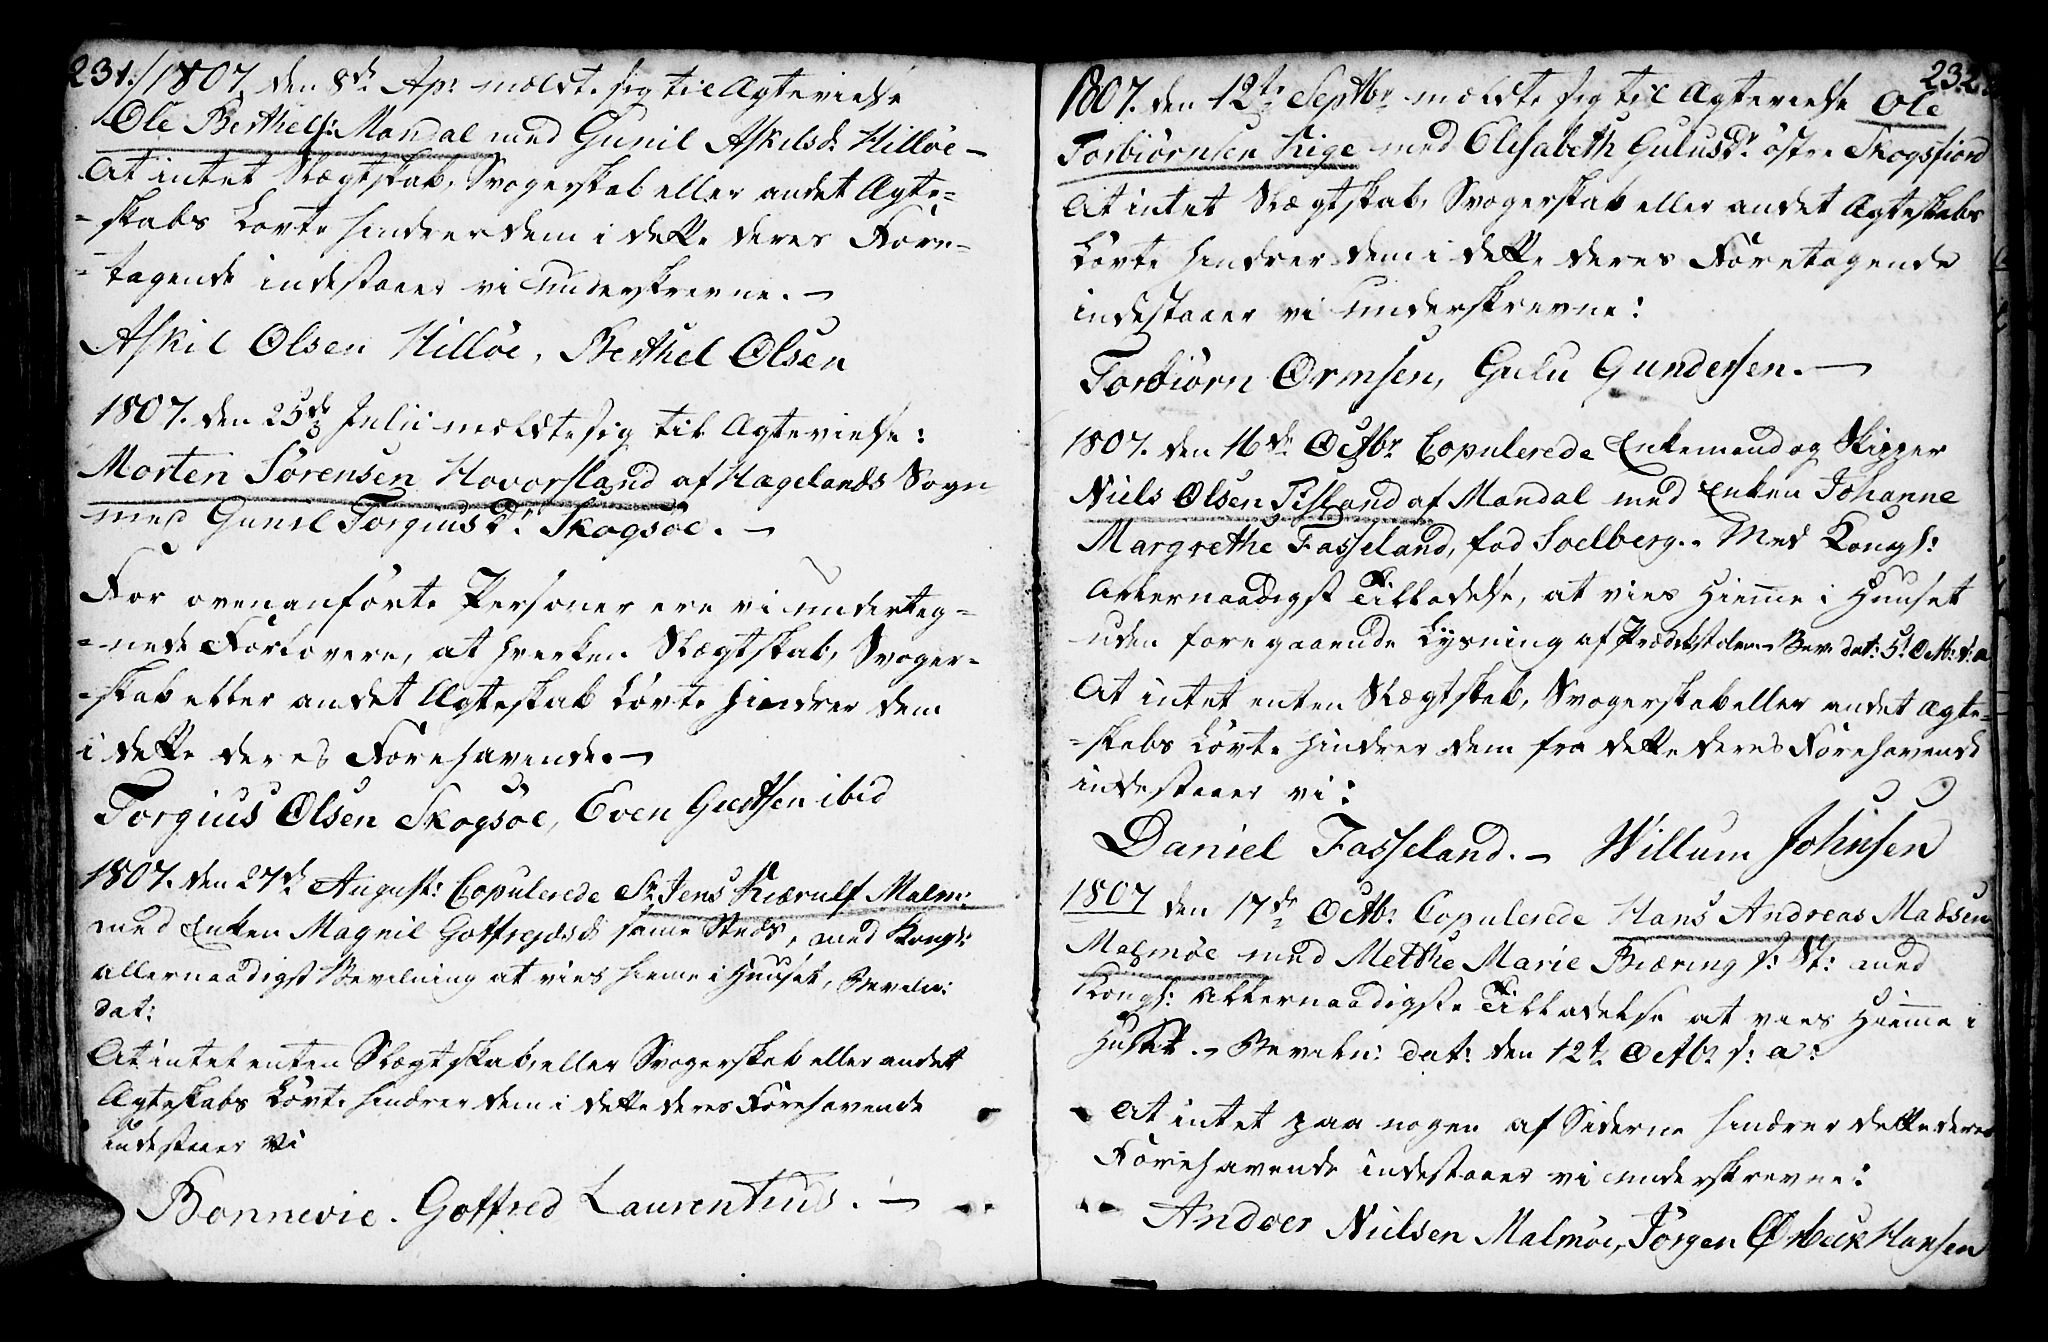 231./ 1807. den 8de Apr: meldte sig til Ægtevielse
Ole Berthels: Mandal med Gunil Askilsd: Hilløe –
At intet Slægtskab, Svogerskab eller andet Ægte=
=skabs Løvte hindrer dem i dette deres Fore=
=tagende indestaaer vi underskrevne. –
Askil Olsen Hilløe, Berthel Olsen
1807. den 25de Julii meldte sig til Ægtevielse:
Morten Sørensen Hovorsland af Hagelands Sogn
med Gunil TorgiusDr. Skogsøe. –
For ovenanførte Personer ere vi underteg=
=nede Forlovere, at hverken Slægtskab, Svoger=
=skab eller andet Ægteskab Løvte hindrer dem
i dette deres Forehavende. –
Torgius Olsen Skogsøe, Even ibid
1807. den 27de August: Copulerede Sr. Jens Kiærulf Malm:
med Enken Magnil Gotfrejdsd: samme Steds, med Kongl:
allernaadigst Bevilning at vies hieme i Huuset, Beviln:
dat:
At intet enten Slægtskab, eller Svogerskab eller andet
Ægteskabs Løvte hindrer dem i dette deres Forehavende
indestaaer vi
Bonnevie. Gotfred Laurentius. –
232.
1807. den 12te Septbr meldte sig til Ægtevielse Ole
Torbiørnsen Hige med Elisabeth GulusDr. östre Skogsfiord
At intet Slægtskab, Svogerskab eller andet Ægteskabs
Løvte hindrer dem i dette deres Foretagende
indestaaer vi underskrevne:
Torbiørn Ormsen, Gulu Gundersen. –
1807. den 16de Octbr. Copulerede Enkemand og Skipper
Niels Olsen af Mandal med Enken Johanne
Margrethe Fasseland, fød Soelberg. – Med Kongl:
Allernaadigst Tilladelse, at vies Hieme i Huuset
uden foregaaende Lysning af Prædikestolen. Bev: dat: 5t Octbr: s: a
At intet enten Slægtskab, Svogerskab eller andet Ægte=
=skabs Løvte hindrer dem fra dette deres Forehavende
indestaaer vi:
Daniel Fasseland. – Willum Johnsen
1807 den 17de Octbr: Copulerede Hans Andreas Madsen
Malmøe med Methe Marie Biæring s: St: med
Kongl: Allernaadigste Tilladelse at vies Hieme i
Huset. – Beviln: dat: den 12te Octbr: s: a:
At intet paa nogen af Siderne hindrer dette deres
Forehavende indestaaer vi underskrevne:
Andver Nielsen Malmøe, Jörgen Örbeck Hansen